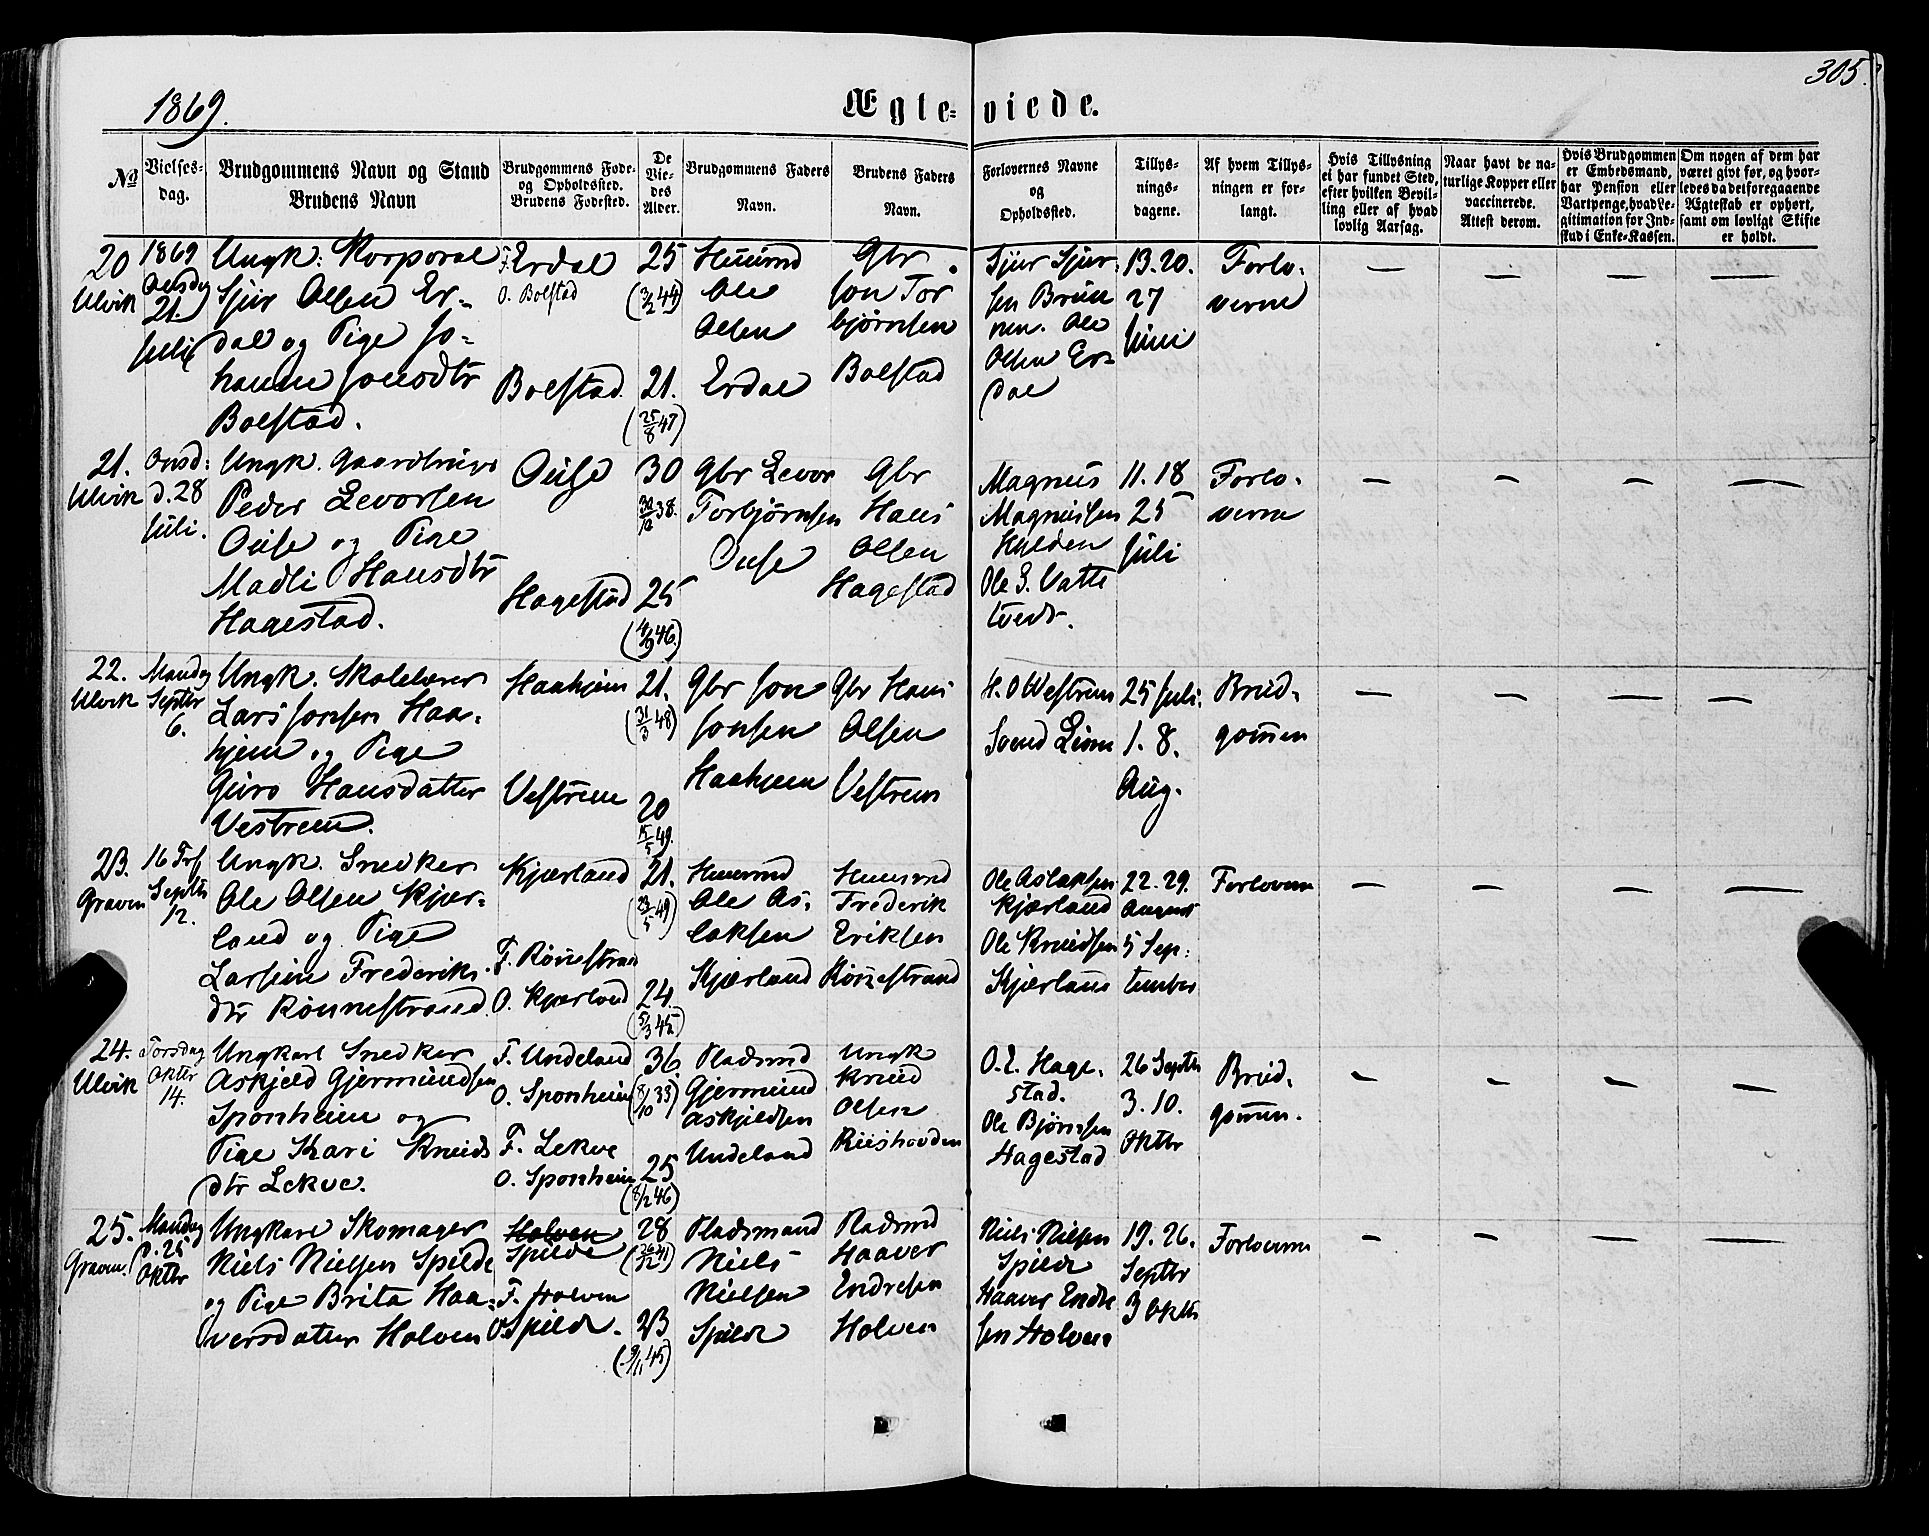 1869.
Ægteviede.
305.
No
Vielses-
dag.
Brudgommens Navn og Stand
Brudens Navn
Brudgommens Føde-
og Opholdssted.
Brudens Fødested.
De
Vie-
des
Alder.
Brudgommens Faders
Navn.
Brudens Faders
Navn.
Forlovernes Navne
og
Opholdssted.
Tillys-
nings-
dagene.
Af hvem Tillys-
ningen er for-
langt.
Hvis Tillysning
ei har fundet Sted,
efter hvilken Bevil-
ling eller af hvad
lovlig Aarsag.
Naar havt de na-
turlige Kopper eller
vaccinerede.
Attest derom.
Hvis Brudgommen
er Embedsmand,
har Pension eller
Vartpenge, hvad Le-
gitimation for Ind-
skud i Enke-Kassen.
Om nogen af dem har
været givt før, og hvor-
ledes da det foregaaende
Ægteskab er ophørt,
samt om lovligt Skifte
er holdt.
20
Ulvik
1869
Onsdag
21.
Juli
Ungk: Korporal
Sjur Olsen Er-
dal og Pige Jo-
hanna Jonsdtr
Bolstad.
F. Erdal
O. Bolstad
Bolstad.
25
(3/2 44)
21.
(25/8 47)
Husmd
Ole
Olsen
Erdal
Gbr.
Jon Tor
bjørnsen
Bolstad
Sjur Sjur-
sen Bruu
nen. Ole
Olsen Er-
dal
13. 20.
27
Juni
Forlo-
verne
— — — —
21.
Ulvik
Onsd:
d. 28
Juli.
Ungk. Gaardbruger
Peder Levorsen
Ouse og Pige
Madli Hansdtr
Hagestad.
Ouse
Hagestad
30
30/12 38.
25
(4/9 46)
Gbr Levor
Torbjørnsen
Ouse
Gbr
Hans
Olsen
Hagestad
Magnus
Magnussen
Halden
Ole S. Vatle
tvedt.
11. 18
25
Juli
Forlo-
verne
— — — —
22.
Ulvik
Mandag
Septbr
6.
Ungk. Skolelærer
Lars Jonsen Haa-
hjem og Pige
Guro Hansdatter
Vestrem.
Haahjem
Vestrem
21.
(31/3 48)
20
15/5 49.
Gbr Jon
Jonsen
Haahjem
Gbr Hans
Olsen
Vestrem
H. O Westrem
Svend Lione
25 Juli.
1. 8.
Aug.
Brud-
gommen
— — — —
23.
Graven
Septbr
12.
Ungk. Snedker
Ole Olsen Kjær-
land og Pige
Larsine Frederiks-
dtr Rønnestrand.
Kjærland
F. Rønnestrand
O. Kjærland
21.
(23/5 49)
24
(5/3 45)
Husmd
Ole As-
laksen
Kjærland
Husmd
Frederik
Eriksen
Rønnestrand
Ole Aslaksen
Kjærland
Ole Knudsen
Kjærland
22. 29.
August
5 Sep-
tember
Forloverne
— — — —
24.
Ulvik
Torsdag
Oktbr
14.
Ungkarl Snedker
Askjeld Gjermundsen
Sponheim og
Pige Kari Knuds
dtr Lekve.
F. Undeland
O. Sponheim
F. Lekve
O. Sponheim
36.
(8/10 33)
25
(8/2 46)
Pladsmd
Gjermund
Askjeldsen
Undeland
Ungk
Knud
Olsen
O. L. Hage-
stad.
Ole Bjørnsen
Hagestad
26 Septbr
3. 10.
Oktbr
Brud-
gommen.
— — — —
25.
Graven.
Mandag
d. 25
Oktbr
Ungkarl Skomager
Niels Nielsen Spilde
og Pige Brita Haa-
versdatter Holven
Holven
Spilde
F. Holven
O. Spilde.
28
(26/12 41)
23
(9/11 45)
Pladsmand
Niels
Nielsen
Spilde
Pladsmd
Haaver
Endresen
Holven
Niels Nielsen
Spilde
Haaver Endre
sen Holven
19. 26.
Septbr
3 Oktbr
Forloverne
— — — —